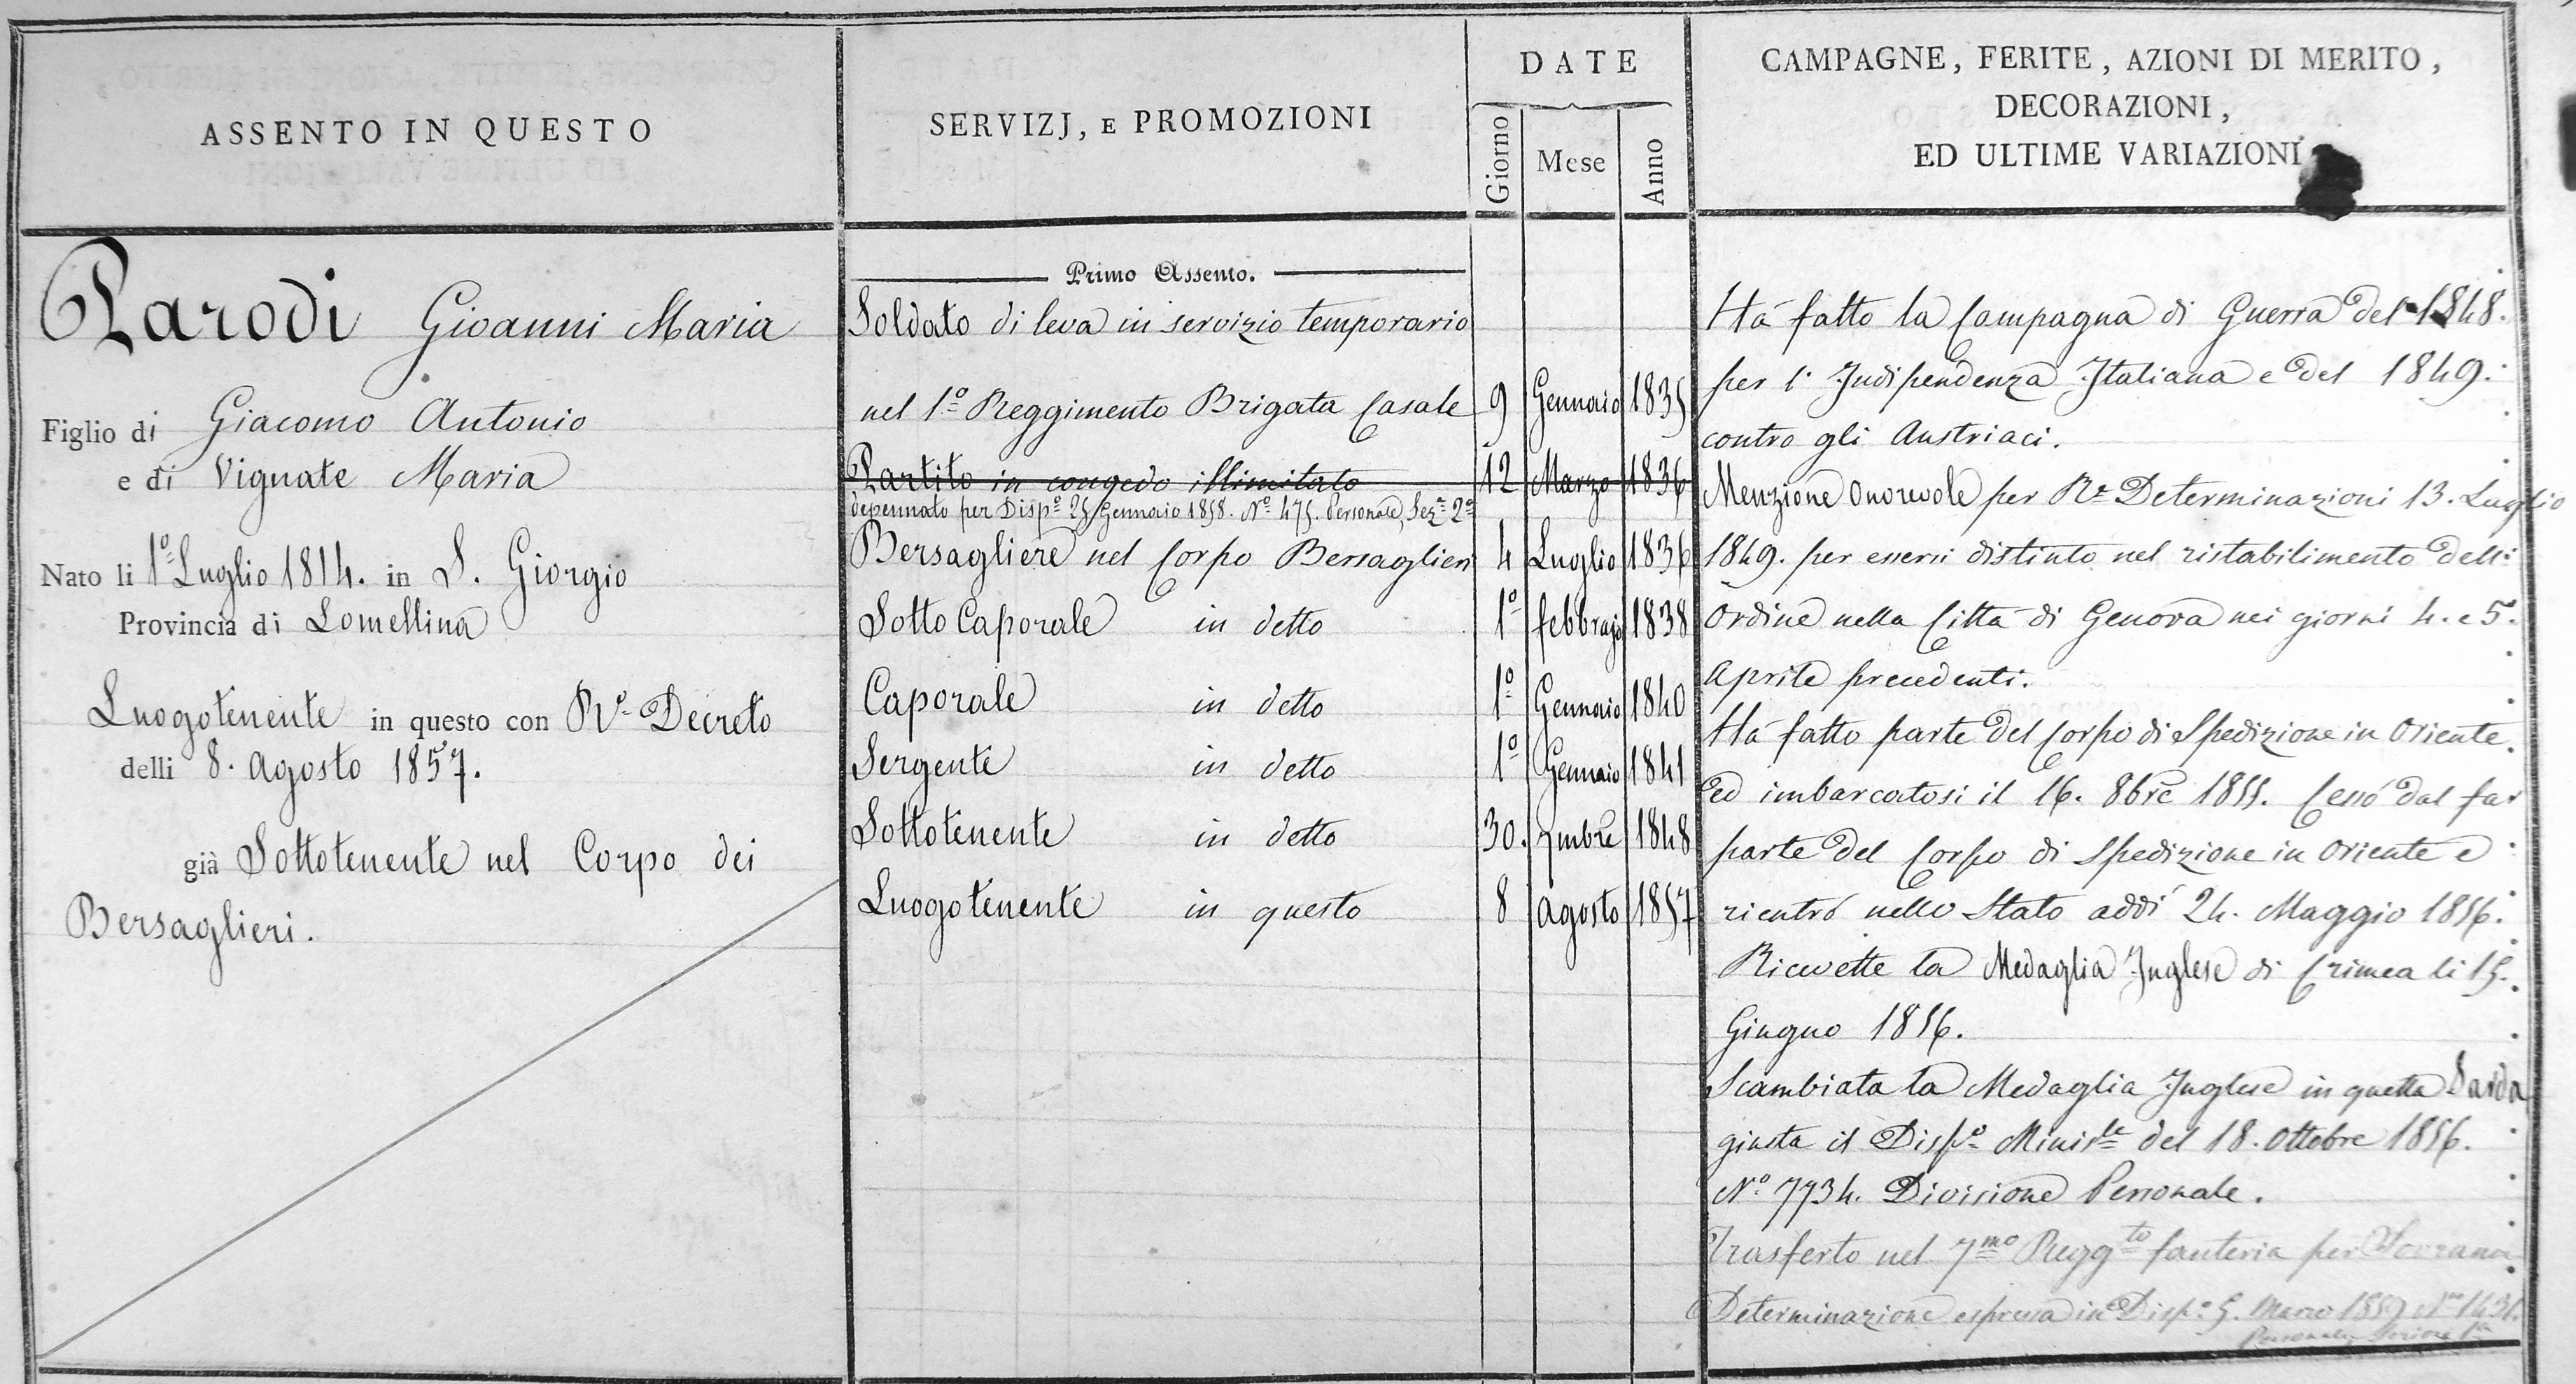 ASSENTO IN QUESTO
Parodi Giovanni Maria
Figlio di Giacomo Antonio
e di Vignate Maria
Nato li 1º Luglio 1814. in S. Giorgio
Provincia di Lomellina
Luogotenente in questo con Rº Decreto
delli 8. Agosto 1857.
già Sottotenente nel Corpo dei
Bersaglieri.
SERVIZJ, E PROMOZIONI
DATE
Giorno Mese Anno
Primo Assento.
Soldato di leva in servizio temporario
nel 1º Reggimento Brigata Casale 9 Gennaio 1835
Partito in congedo illimitato 12 Marzo 1836
depennato per Dispº 25 Gennaio 1858. Nº 475. Personale, Sezº 2ª
Bersagliere nel Corpo Bersaglieri 4 Luglio 1836
Sotto Caporale in detto 1º febbrajo 1838
Caporale in detto 1º Gennaio 1840
Sergente in detto 1º Gennaio 1841
Sottotenente in detto 30. 7mbre 1848
Luogotenente in questo 8 Agosto 1857
CAMPAGNE, FERITE, AZIONI DI MERITO,
DECORAZIONI,
ED ULTIME VARIAZIONI
Há fatto la Campagna di Guerra del 1848.
per l' Indipendenza Italiana e del 1849.
contro gli Austriaci.
Menzione Onorevole per Rº Determinazioni 13. Luglio
1849. per essersi distinto nel ristabilimento dell'
Ordine nella Cittá di Genova nei giorni 4. e 5.
Aprile precedenti.
Há fatto parte del Corpo di Spedizione in Oriente.
ed imbarcatosi il 16. 8bre 1855. Cessó dal far
parte del Corpo di Spedizione in Oriente e
rientró nello Stato addí 24. Maggio 1856.
Ricevette la Medaglia Inglese di Crimea li 15.
Giugno 1856.
Scambiata la Medaglia Inglese in quella Sarda
giusta il Dispº Minisle del 18. Ottobre 1856.
Nº 7734. Divisione Personale.
Trasferto nel 7mo Reggto fanteria per Sovrana
Determinazione espressa in Dispº 5. Marzo 1859 Nº 1431.
Personale, Sezione 1ª